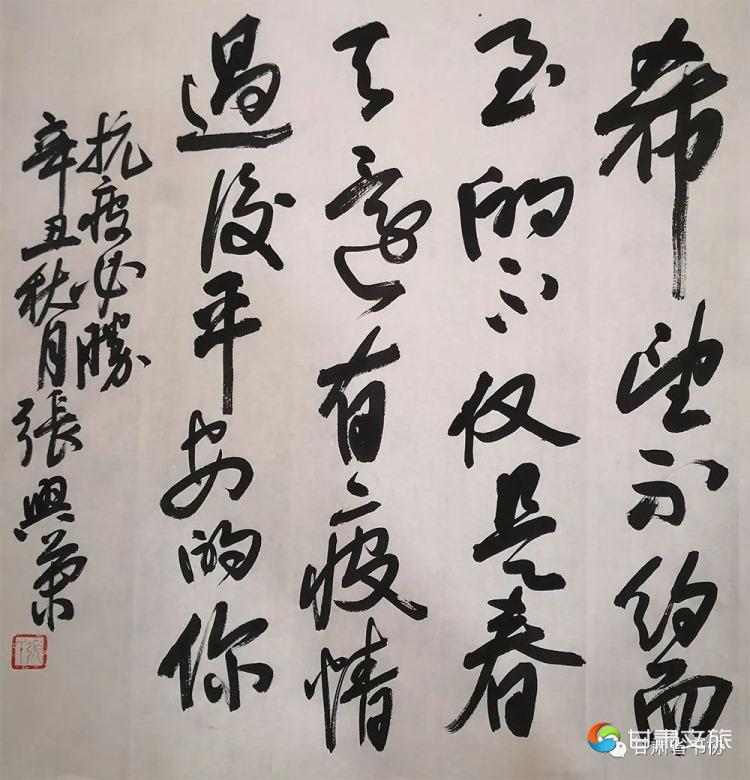 希望不约而
至的不仅是春
天還有疫情
過後平安的你
抗疫必勝
辛丑秋月張興
甘肃文旅
甘肃省书协